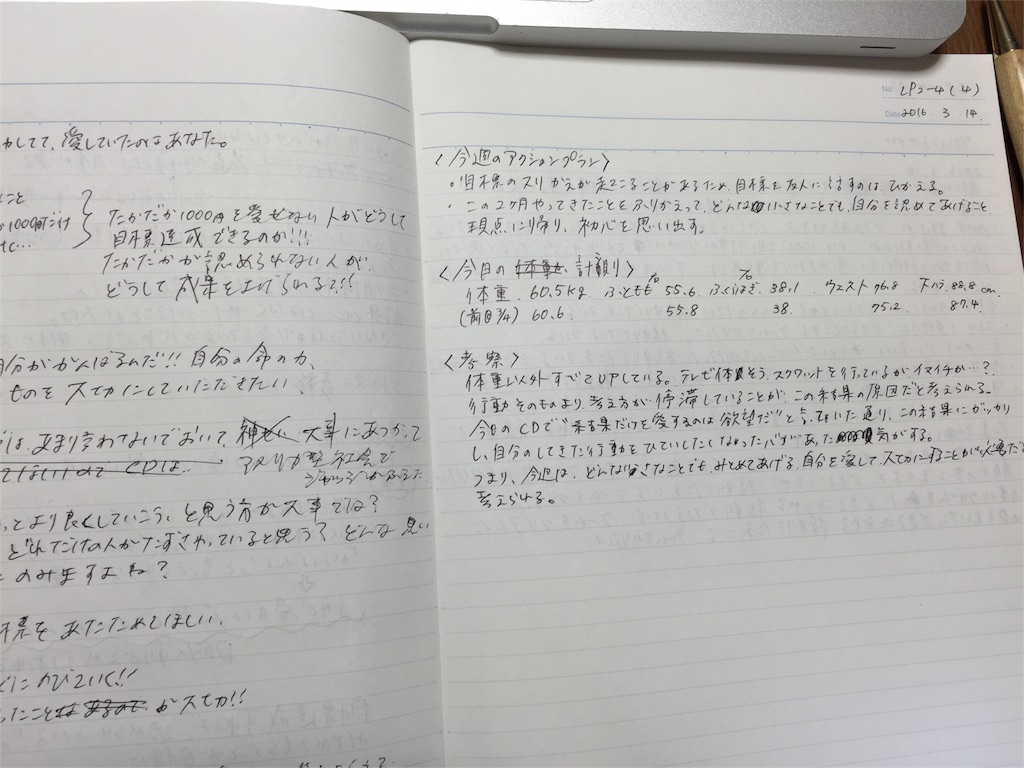 愛していたのはあなた。
こと
1000円だけ
たかだか1000円を愛せない人がどうして
目標達成できるのか!!!
たかだかが認められない人が、
どうして成果を上げられる?!!
自分ががんばるんだ!! 自分の命の力、
ものを大切にしていただきたい
は、あまり合わせないでおいて、 大事にあつかって
CDは、 アメリカ型社会で
とより良くしていこう、と思う方が大事では?
どれだけの人がたずさわっていると思う? どんな思い
のみますよね?
標をあたためてほしい。
のびていく!!
したこと が大切!!
No. LP2-4(4)
Date 2016. 3. 14.
〈今週のアクションプラン〉
・目標のスリかえが起こることがあるため、目標を友人に話すのはひかえる。
・この2ヶ月やってきたことをふりかえって、どんな小さなことでも、自分を認めてあげること
現点に帰り、初心を思い出す。
〈今日の 計測〉
体重. 60.5kg. ふともも 55.6. ふくらはぎ. 38.1 ウェスト 76.8 大バラ. 88.8 cm.
(前回3/4) 60.6. 55.8 38. 75.2. 87.4.
〈考察〉
体重以外すべてUPしている。テレビ体そう、スクワットを行っているがイマイチか…?
行動そのものより、考え方が停滞していることが、この結果の原因だと考えられる。
今日のCDで"結果だけを愛するのは欲望だ"と言っていた通り、この結果にがっかり
し、自分のしてきた行動をひていしたくなった 気がする。
つまり、今週は、どんな小さなことでも、みとめてあげる、自分を愛して、大切にすることが必要だと
考えられる。